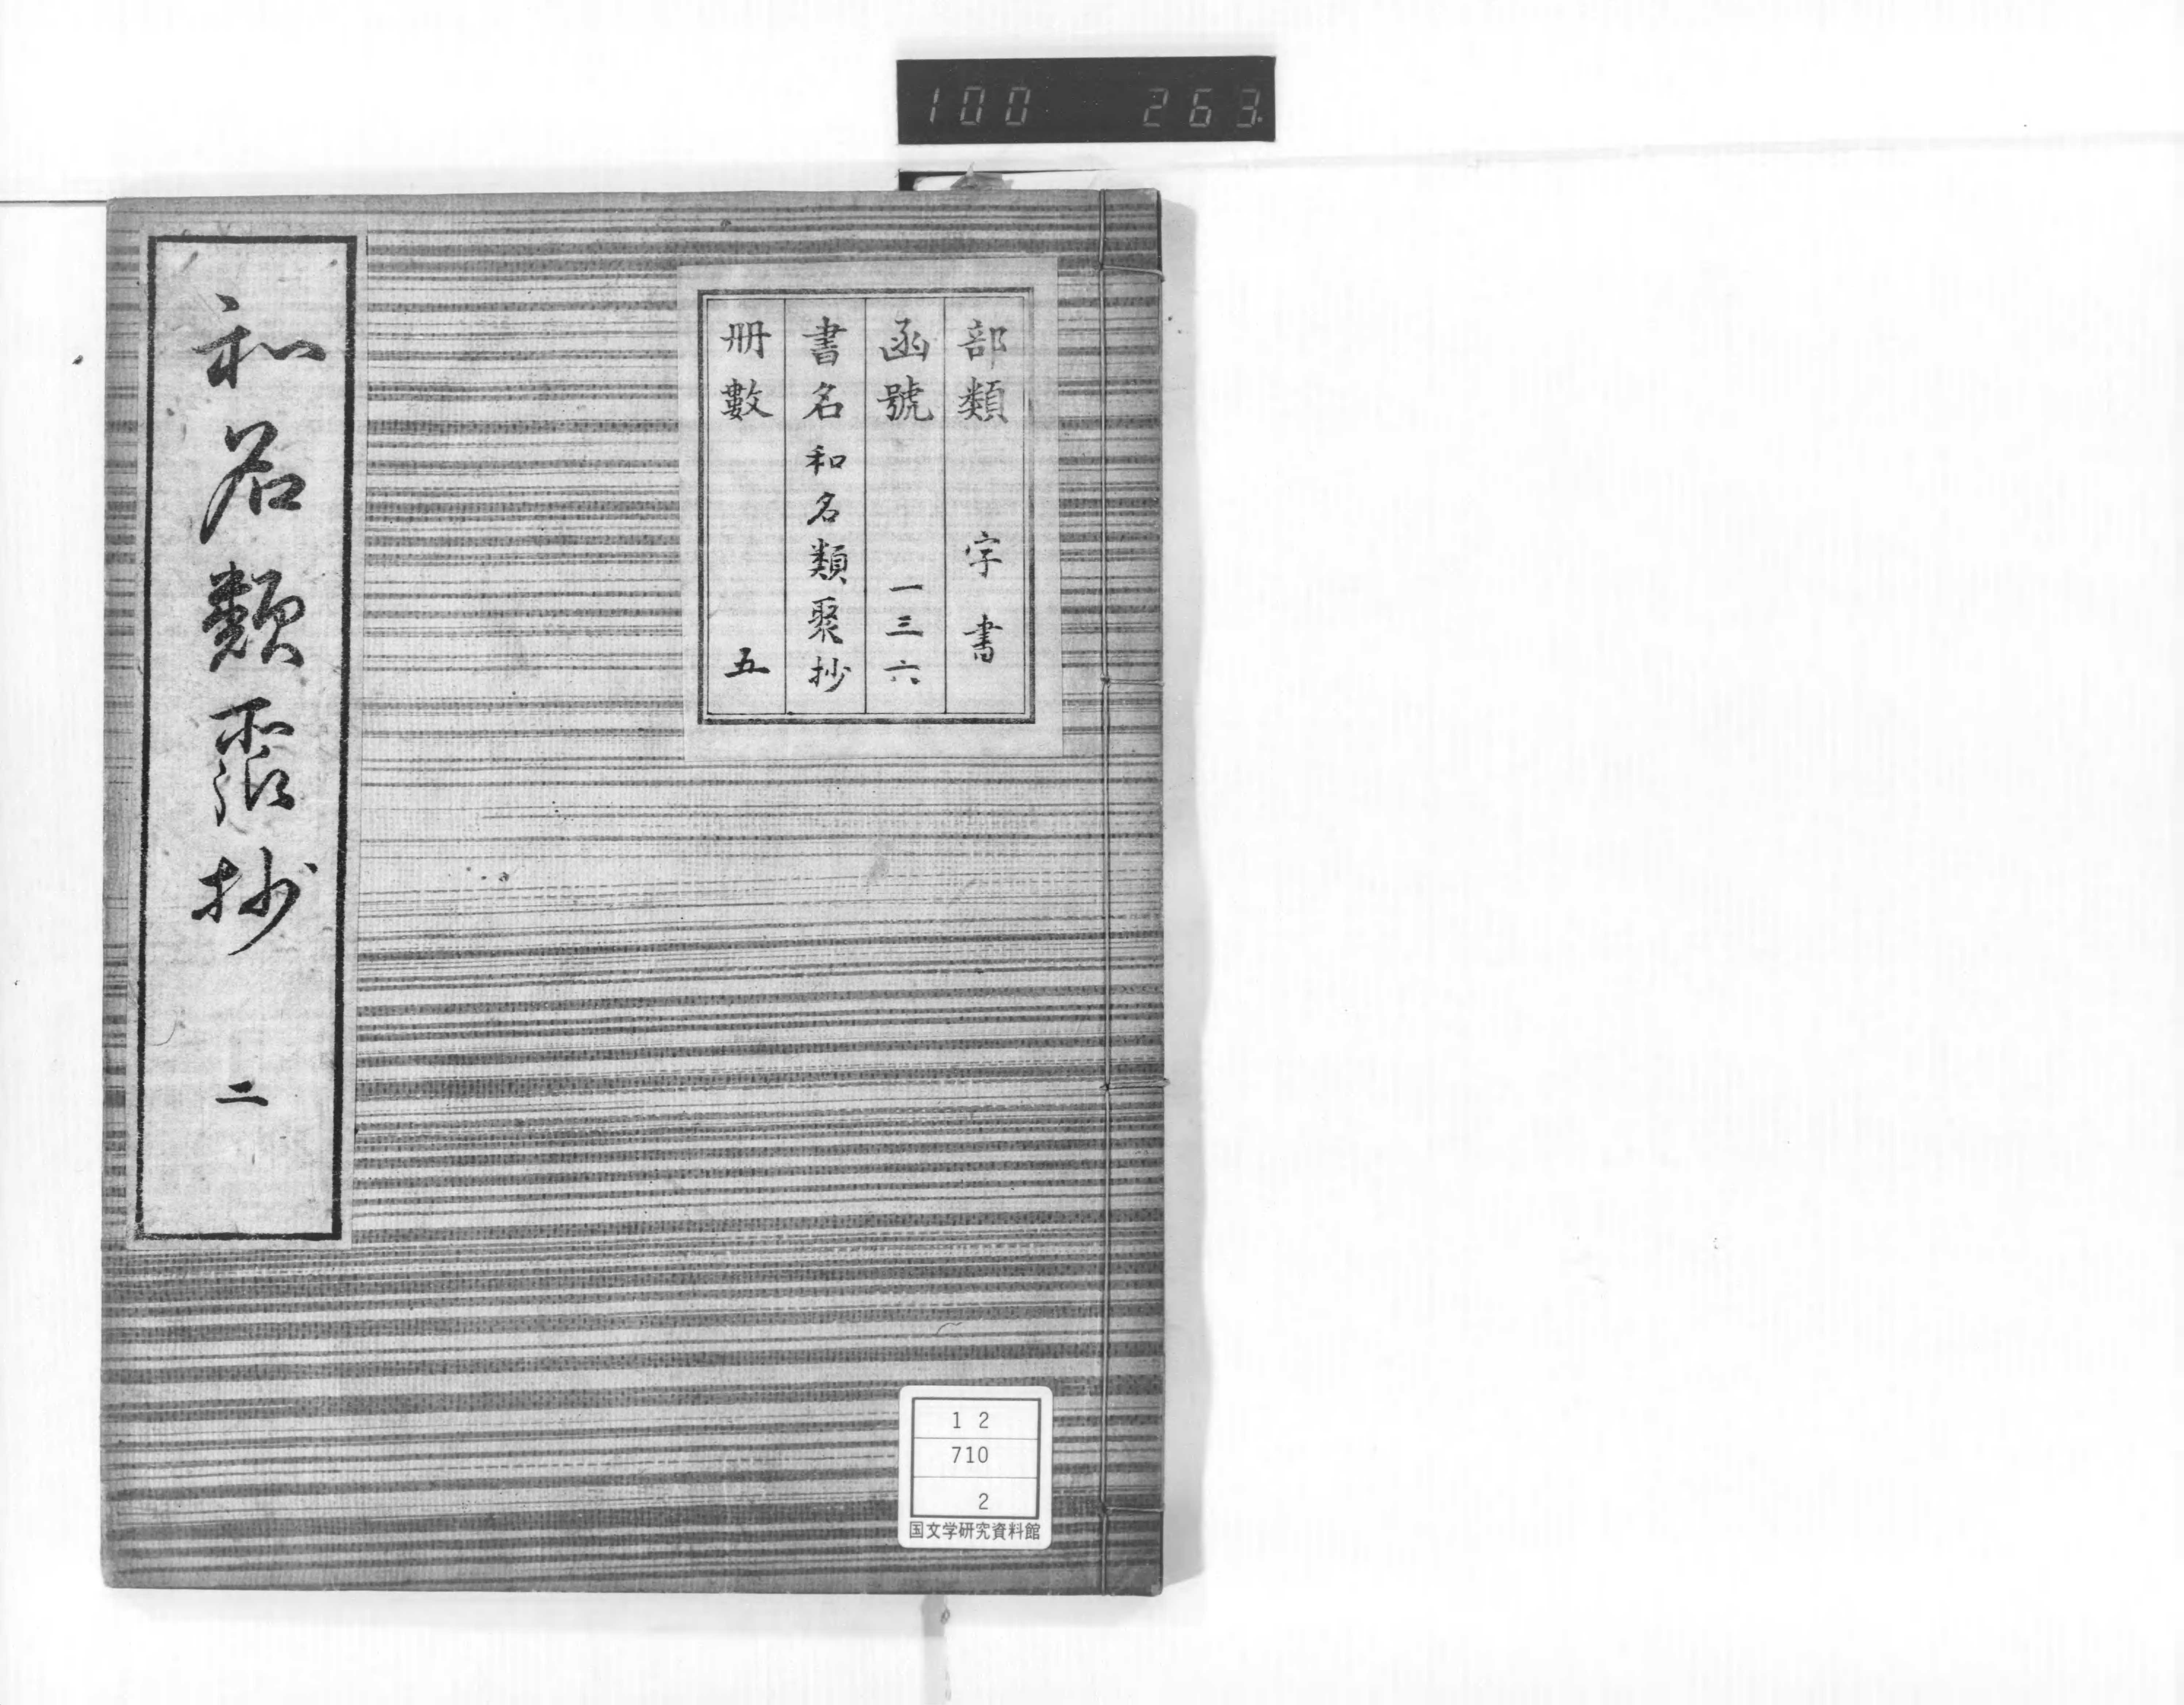 100 263.
部類 字書
函號 一三六
書名 和名類聚抄
冊數 五
和名類聚抄 二
12
710
2
国文学研究資料館